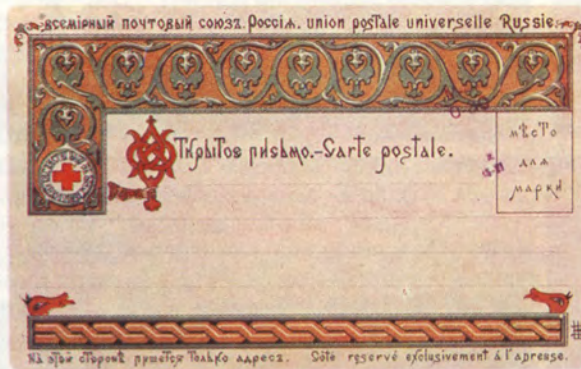 всемірный почтовый союзъ. Россія. union postale universelle Russie.
Открытое письмо.-Carte postale.
мѣсто
для
марки
На этой сторонѣ пишется только адресъ. Côté reservé exclusivement à l'adresse.